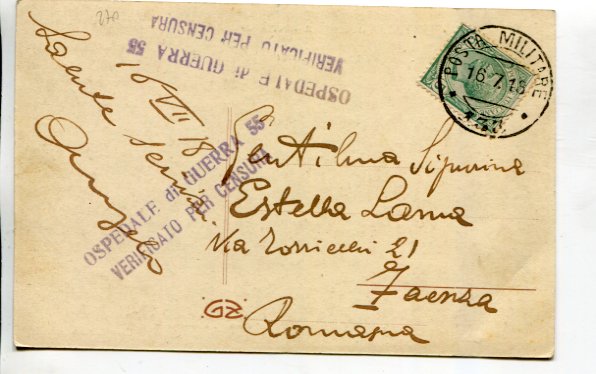 270
OSPEDALE di GUERRA 55
VERIFICATO PER CENSURA
POSTA MILITARE
16.7.18
16 VII 18
OSPEDALE di GUERRA 55
VERIFICATO PER CENSURA
Gentilma Signorina
Estella Lama
Via Torricelli 21
Faenza
Romagna
GZ